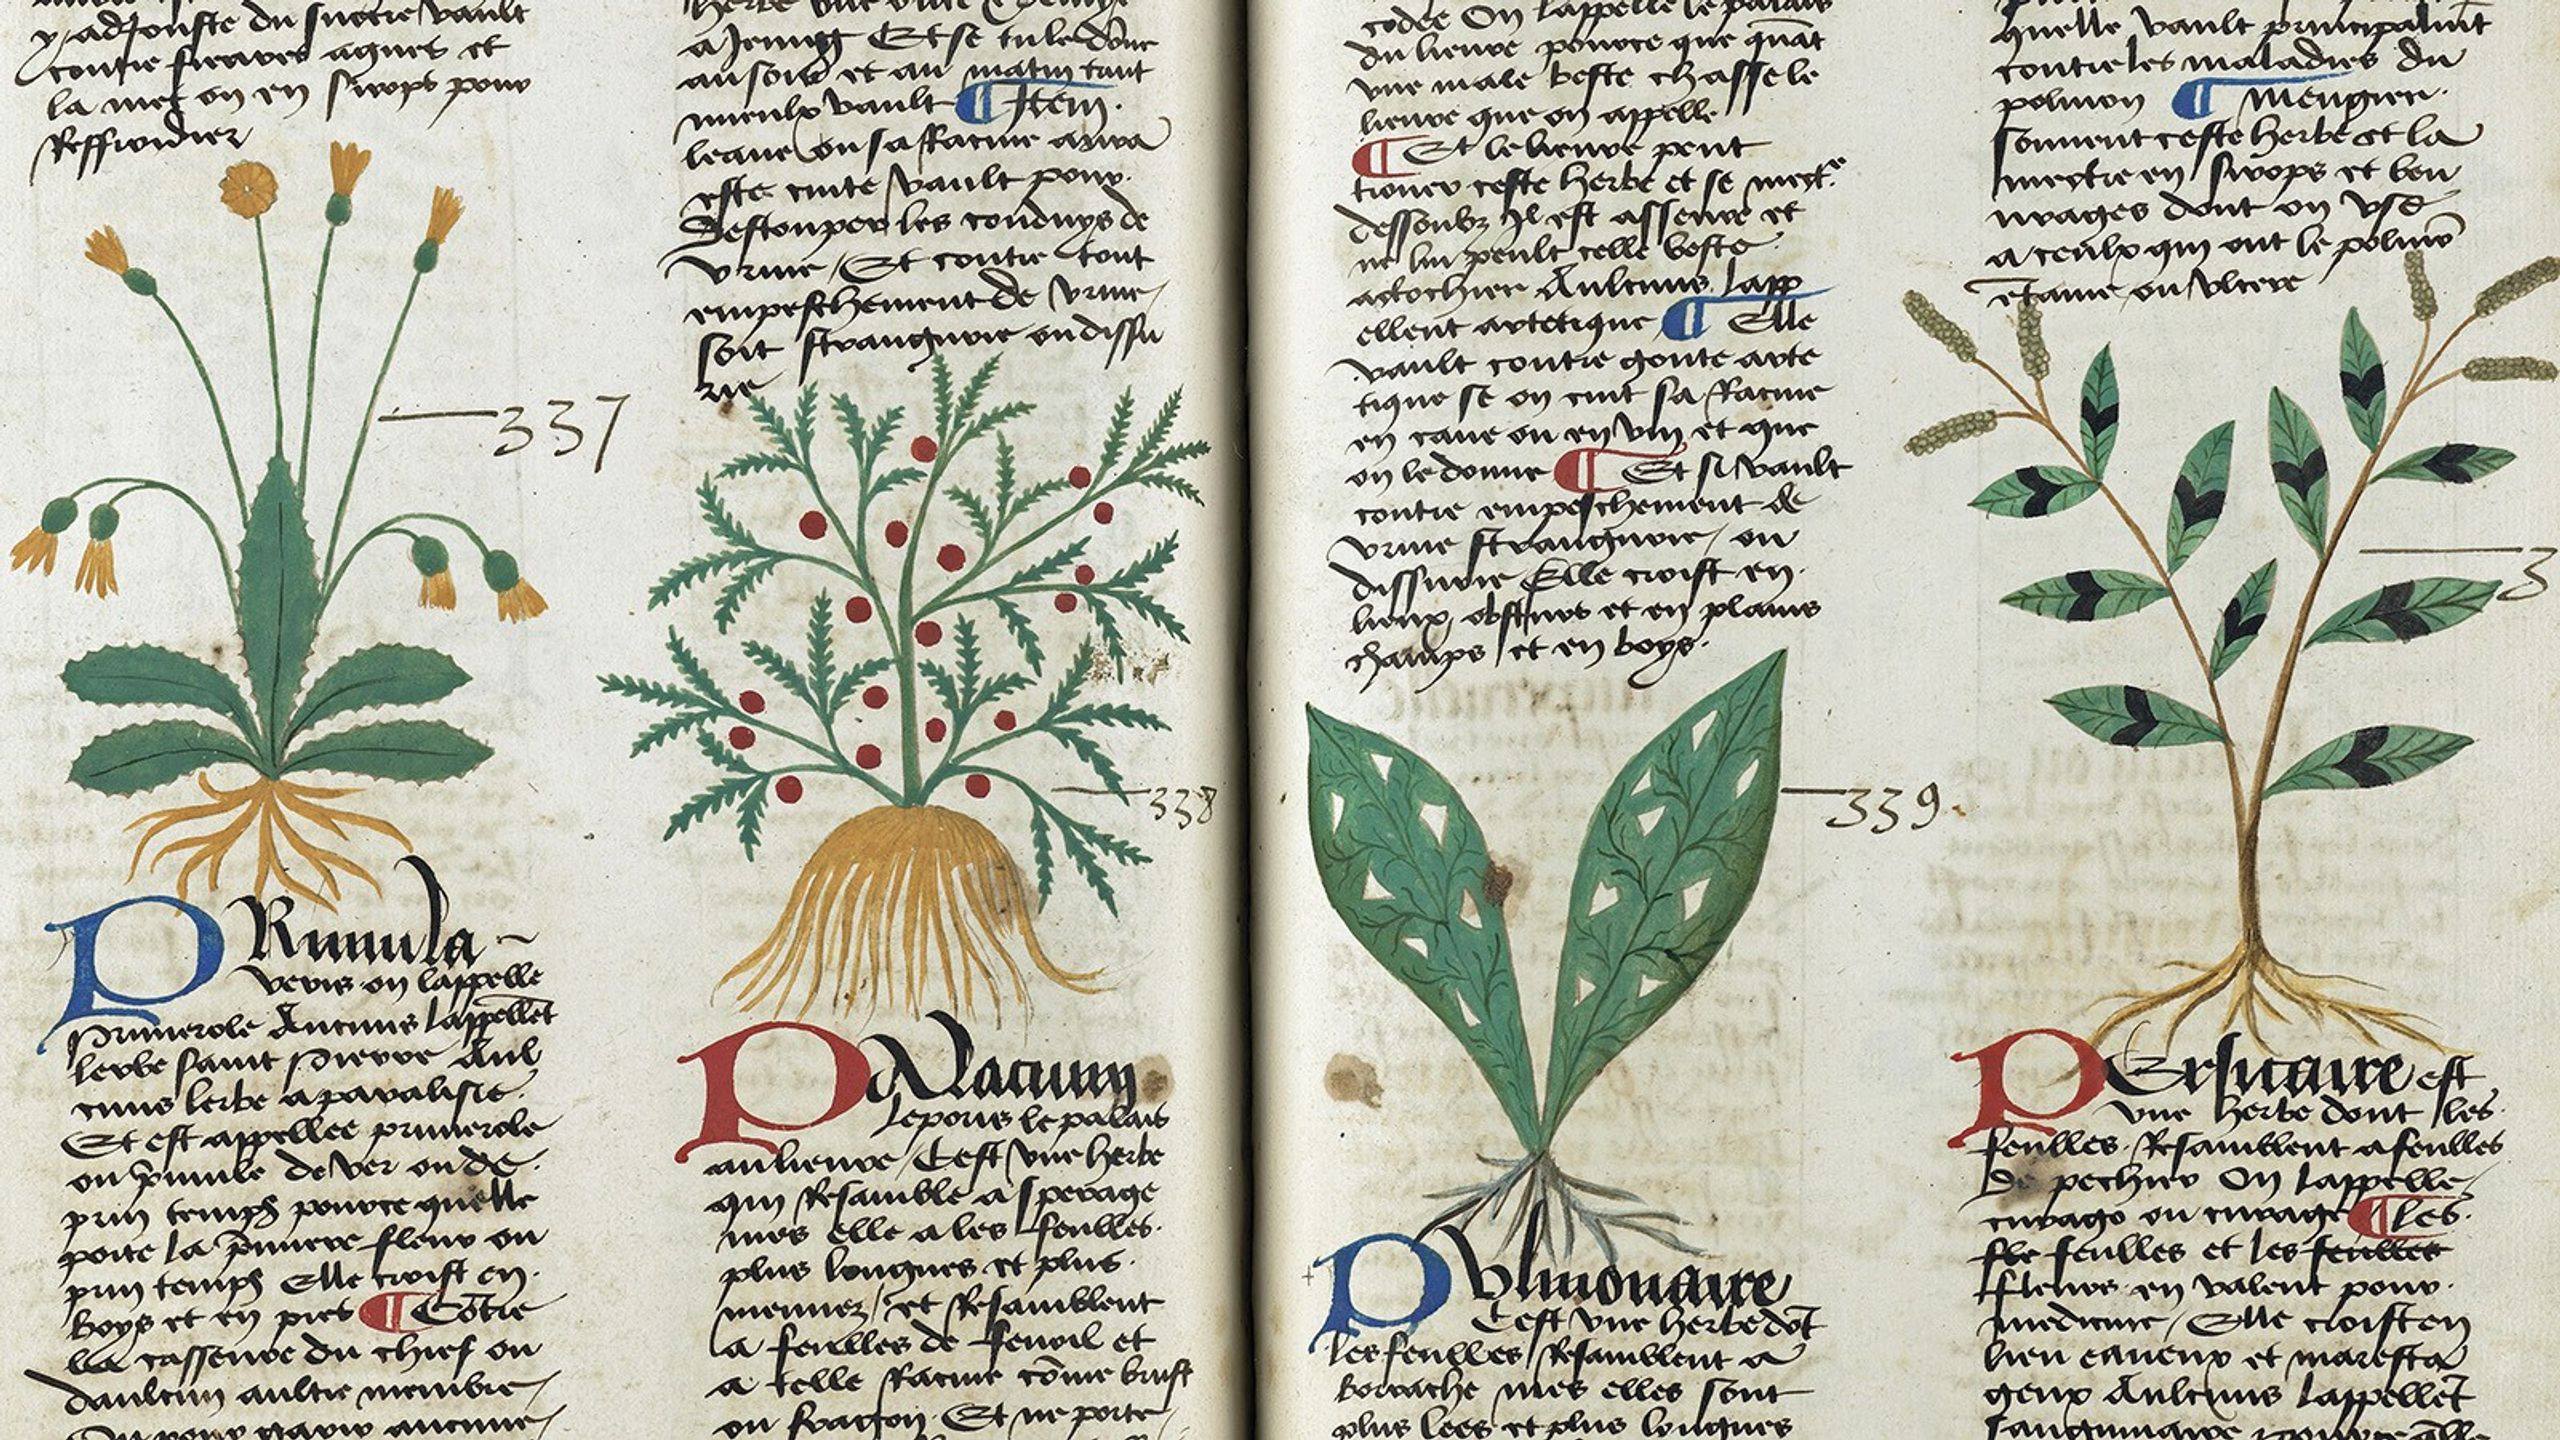 y adiouste du succre vault
contre fievres agues et
la met on en sirops pour
Reffroidier
337
PRimula
veris on lappelle
primerole Aucuns lappellẽt
lerbe saint pierre Aul
cuns lerbe a paralisie.
Et est appellee primerole
ou p̃mule de ver ou de.
prin temps pource quelle
porte la p̃miere fleur ou
prin temps Elle croist en.
boys et en prets ¶ Cõtre
la casseure du chief ou
daulcun aultre membre
a Jeung Et se tu le dõne
au soir et au matin tant
mieulx vault ¶ Item.
leaue ou sa Racine aura
este cuite vault pour.
destouper les conduys de
vrine / Et contre tout
empeschement de vrine /
soit stranguire ou dissu
rie
338
PAlacium
leporis le palais
au lieure / Cest vne herbe
qui Resamble a sperage
mes elle a les feulles.
plus longues et plus.
menuez / et Resamblent
a feulles de fenoil et
a telle Racine cõme brust
ou fragon. Et ne porte
codee On lappelle le palais
du lieure pource que quãt
vne male beste chasse le
lieure que on appelle
¶ Et le lieure peut
trouer ceste herbe et se mect.
dessoubz Il est asseure et
ne lui peult celle beste
atochier Aulcuns lapp
ellent artetique ¶ Elle
vault contre goute arte
tique se on cuit sa Racine
en eaue ou en vin et que
on le donne ¶ Et si vault
contre empeschement de
vrine stranguire / ou
dissurie Elle croist en.
lieux obscurs et en plains
champs et en boys.
339.
PVlmonaire
Cest vne herbe dõt
les feulles Resamblent a
borrache mes elles sont
plus lees et plus longues
quelle vault principalmt̃
contre les maladies du
polmon ¶ Mengier.
souuent ceste herbe et la
mectre en sirops et beu
urages dont on vse
a ceulx qui ont le polmõ
entame ou vlcere
3
PErsicaire est
vne herbe dont les.
feulles Resamblent a feulles
de pechier On lappelle
curago ou curage ¶ les.
fle feulles et les feulles
fleurs en valent pour.
medicine / Elle croist en
lieu eaueux et maresca
geux Aulcuns lappellẽt